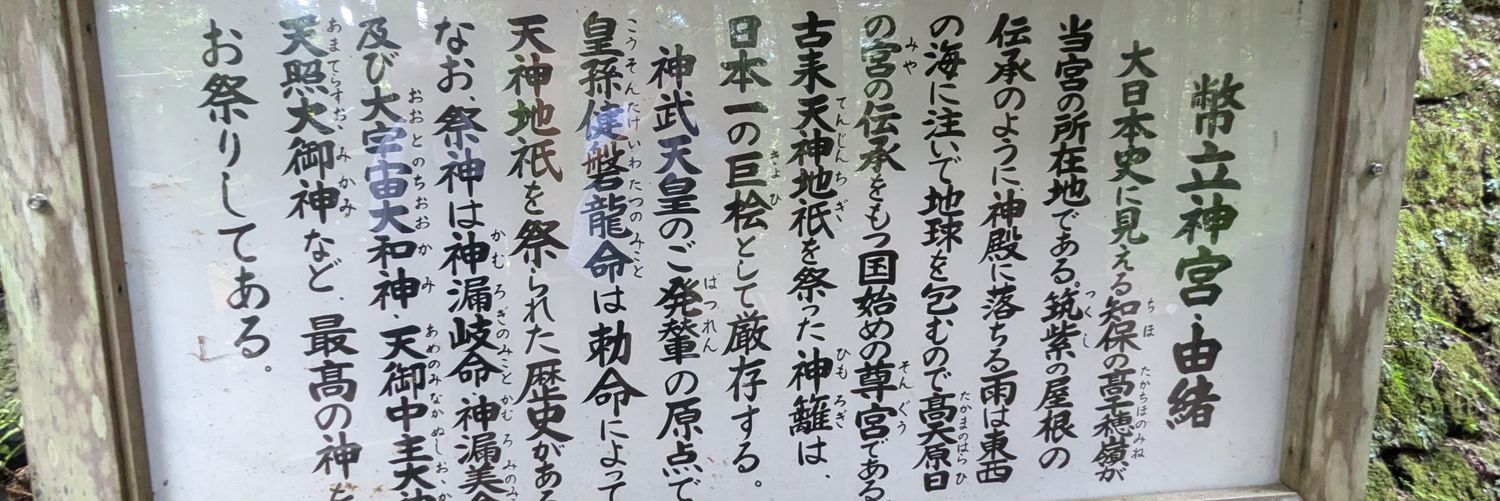 幣立神宮・由緒
大日本史に見える知保の高千穂嶺が
当宮の所在地である。筑紫の屋根の
伝承のように、神殿に落ちる雨は東西
の海に注いで地球を包むので高天原日
の宮の伝承をもつ国始めの尊宮である
古来天神地祇を祭った神籬は、
日本一の巨桧として厳存する。
神武天皇のご発輦の原点で
皇孫健磐龍命は勅命によって
天神地祇を祭られた歴史がある
なお、祭神は神漏岐命・神漏美命
及び大宇宙大和神・天御中主大神
天照大御神など、最高の神を
お祭りしてある。